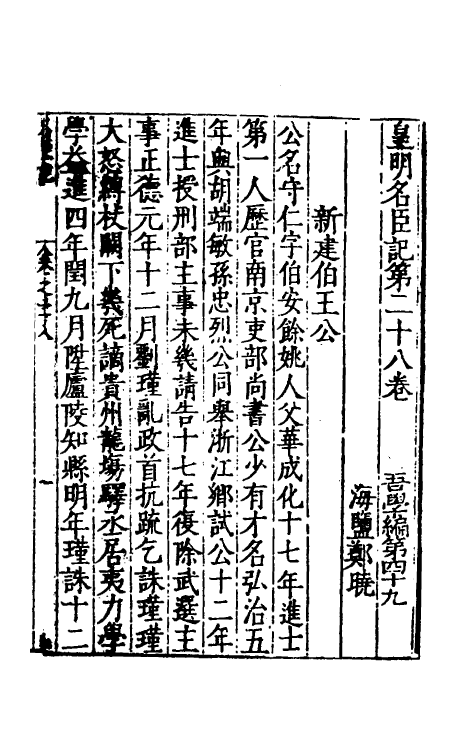 皇明名臣記第二十八卷
吾學編第四十九
海鹽鄭曉
新建伯王公
公名守仁字伯安餘姚人父華成化十七年進士
第一人歷官南京吏部尚書公少有才名弘治五
年與胡端敏孫忠烈公同舉浙江鄉試公十二年
進士授刑部主事未幾請告十七年復除武選主
事正德元年十二月劉瑾亂政首抗疏乞誅瑾瑾
大怒縛杖闕下幾死謫貴州龍場驛丞居夷力學
學益進四年閏九月陞廬陵知縣明年瑾誅十二